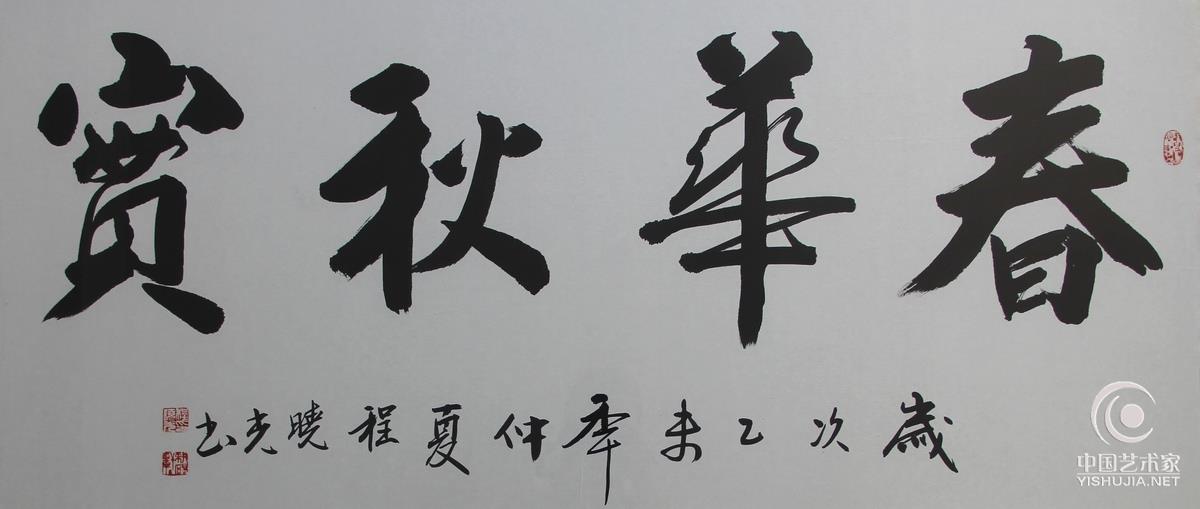 春華秋實
歲次乙未年仲夏程曉光书
中国艺术家
YISHUJIA.NET